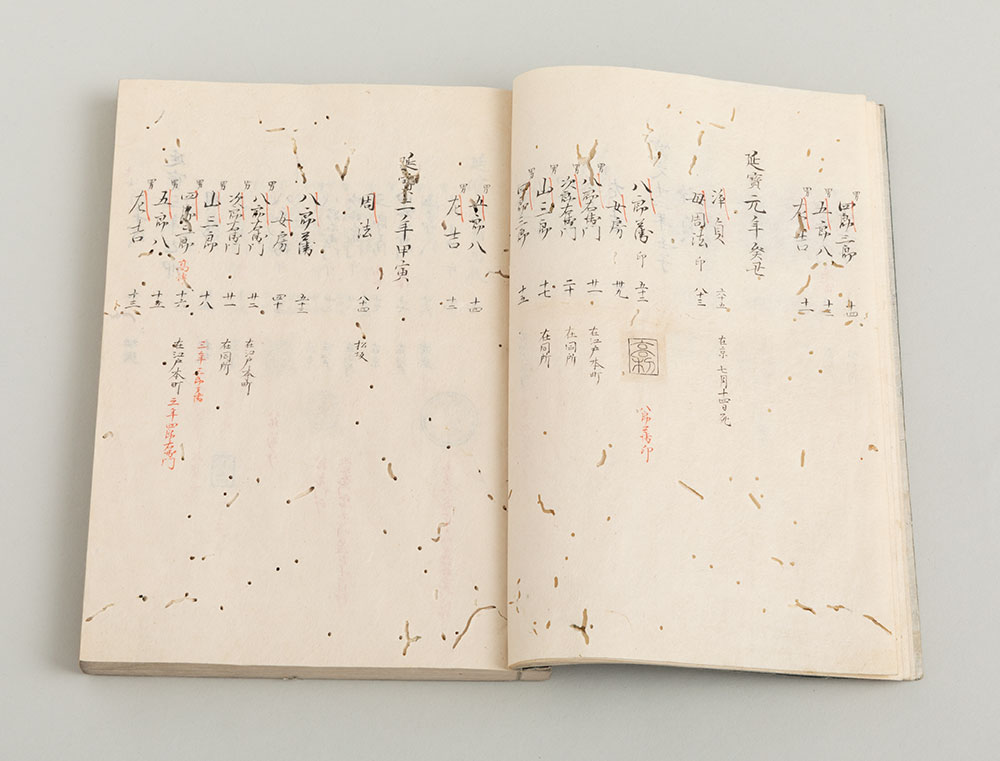 男 四郎三郎 十四
男 五郎八 十三
男 左吉 十一
延寶元年癸丑
浄貞 六十五 在京 七月十四日死
母周法 印 八十三
八郎兵衛 印 五十二 高好 八郎兵衛印
女房 卅九
男 八郎右衛門 廿一 在江戸本町
男 次郎右衛門 二十 在同所
男 山三郎 十七 在同所
男 四郎三郎 十五
男 五郎八 十四
男 左吉 十二
延寶二年甲寅
周法 八十四 松坂
八郎兵衛 五十三
女房 四十
男 八郎右衛門 廿二 在江戸本町
男 次郎右衛門 廿一 在同所
男 山三郎 十八
男 四郎三郎 十六 在江戸本町 三年四郎右衛門
男 五郎八 十五
男 左吉 十三